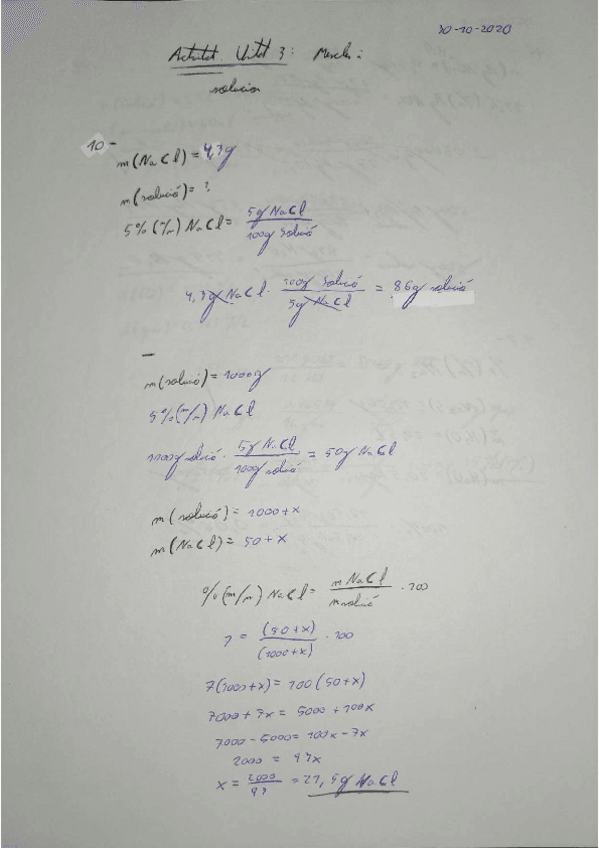 30-10-2020
Activitat Unitat 3: Mescla i
solucion
10-
m(NaCl) = 4,3g
m(solució) = ?
5% (m/m) NaCl = 5g NaCl / 100g Solució
4,3g NaCl · 100g Solució / 5g NaCl = 86g solució
–
m(solució) = 1000g
5% (m/m) NaCl
1000g solució · 5g NaCl / 100g solució = 50g NaCl
m(solució) = 1000 + x
m(NaCl) = 50 + x
% (m/m) NaCl = m NaCl / m solució · 100
7 = (50 + x) / (1000 + x) · 100
7(1000 + x) = 100(50 + x)
7000 + 7x = 5000 + 100x
7000 - 5000 = 100x - 7x
2000 = 93x
x = 2000 / 93 = 21,5g NaCl